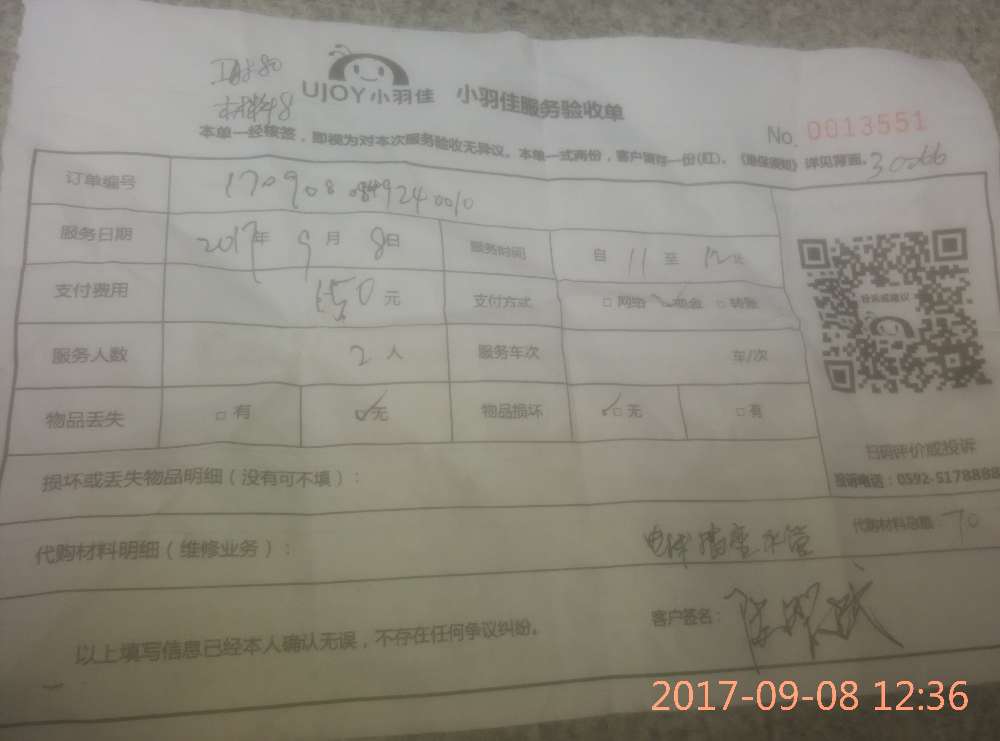 工时80
材料48
UJOY小羽佳 小羽佳服务验收单
No. 0013551
本单一经核签，即视为对本次服务验收无异议。本单一式两份，客户留存一份(红)。《维保须知》详见背面。
30066
订单编号 1709080849240010
服务日期 2017年 9月 8日 服务时间 自 11 至 12
支付费用 150元 支付方式 □网络 现金 □转账
服务人数 2人 服务车次 车/次
物品丢失 □有 ✓无 物品损坏 ✓□无 □有
扫码评价或投诉
投诉电话：0592-5178888
损坏或丢失物品明细（没有可不填）：
代购材料明细（维修业务）： 插座 水管
代购材料总额：70
客户签名：
以上填写信息已经本人确认无误，不存在任何争议纠纷。
2017-09-08 12:36